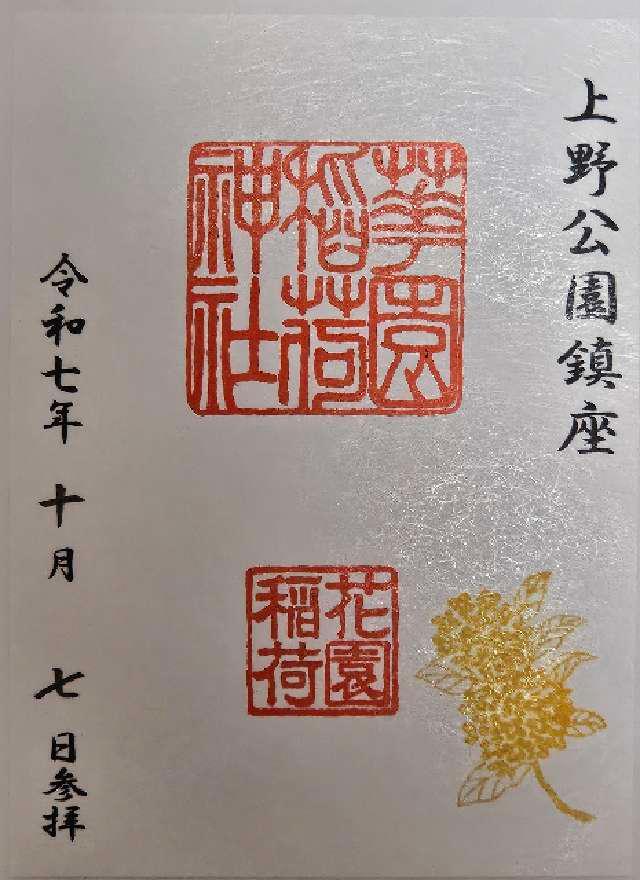 上野公園鎮座
華園
稲荷
神社
花園
稲荷
令和七年 十月 七日参拝